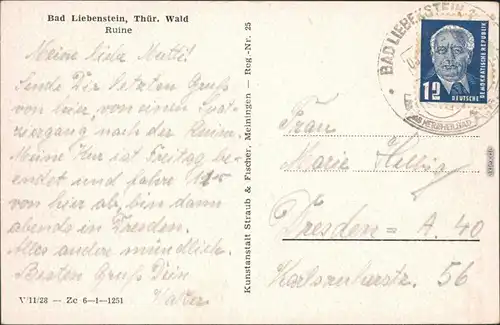 Bad Liebenstein, Thür. Wald
Ruine
Meine liebe Mutti!
Sende Dir letzten Gruß
von hier, von einem Spa-
ziergang nach der Ruine.
Meine Kur ist Freitag be-
endet und fahre 11
von hier ab, bin dann
abends in Dresden.
Alles andere mündlich.
Besten Gruß Dein
V/11/28 — Zc 6—1—1251
Kunstanstalt Straub & Fischer, Meiningen — Reg.-Nr. 25
BAD LIEBENSTEIN
12
DEUTSCHE
DEMOKRATISCHE REPUBLIK
Frau
Marie
Dresden – A. 40
Karlsruherstr. 56